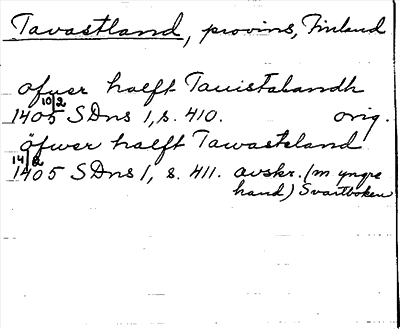 Tavastland, provins, Finland
ofuer halft Tauistalandh
10/2
1405 SDns 1, s. 410. orig.
öfwer halft Tawasteland
14/2
1405 SDns 1, s. 411. avskr. (m yngre
hand) Svartboken